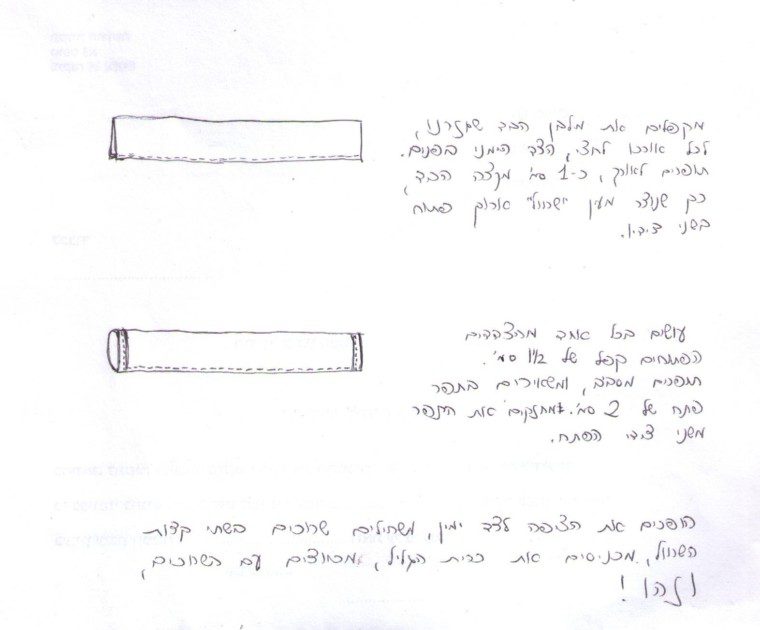 מקפלים את מלבן הבד שגזרנו,
לכל אורכו לחצי, הצד הימני בפנים.
תופרים לאורך, כ-1 סמ' מקצה הבד,
כך שנוצר מעין "שרוול" ארוך פתוח
בשני צידיו.
עושים בכל אחד מהצדדים
הפתוחים קפל של 1/2 1 סמ'.
תופרים מסביב, ומשאירים בתפר
פתח של 2 סמ'. מחזקים את התפר
משני צידי הפתח.
הופכים את הציפה לצד ימין, משחילים שרוכים בשתי קצות
השרוול, מכניסים את כרית הגליל, מכווצים עם השרוכים,
וזהו!